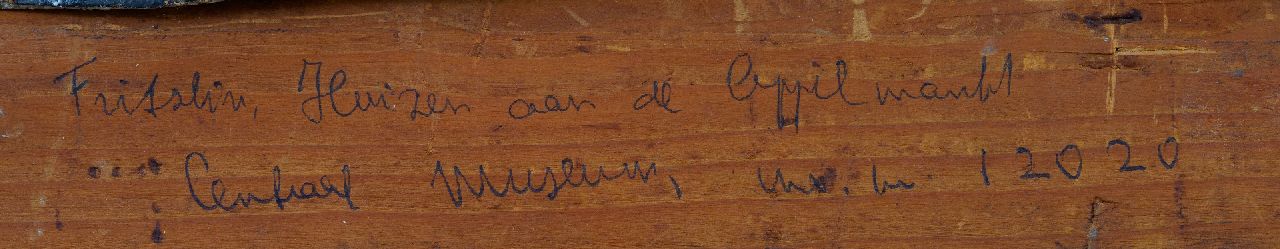 Fritzlin, Huizen aan de Appilmarkt
Centraal Museum, inv. nr. 12020